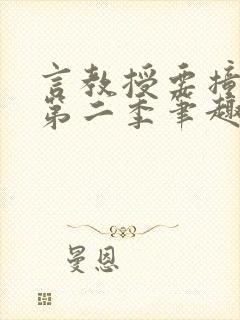 言教授要撞
第二季笔趣
曼恩